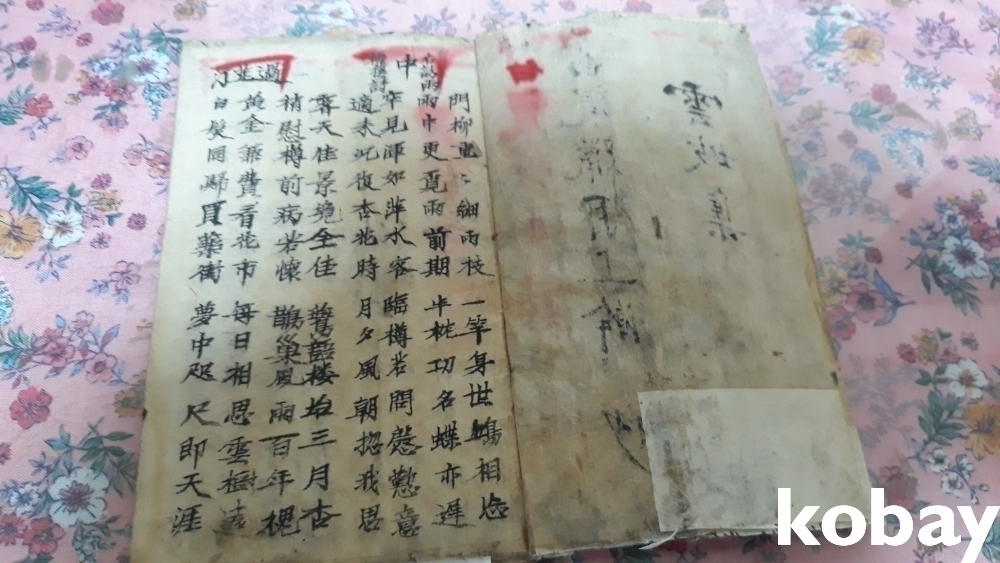 雲集
月上
門柳重〻細雨枝 一竿身世鷗相
雨中更覓雨前期 半枕功名蝶亦遲
中
乍見渾如萍水客 臨樽若問慇懃意
適來況復杏花時 月夕風朝摠我思
霽天佳景境全佳 樓坮三月杏
稍慰樽前病若懷 鵲巢風雨百年槐
過
黃金罷費看花市 每日相思雲樹遠
白髮同歸買藥街 夢中咫尺即天涯
kobay